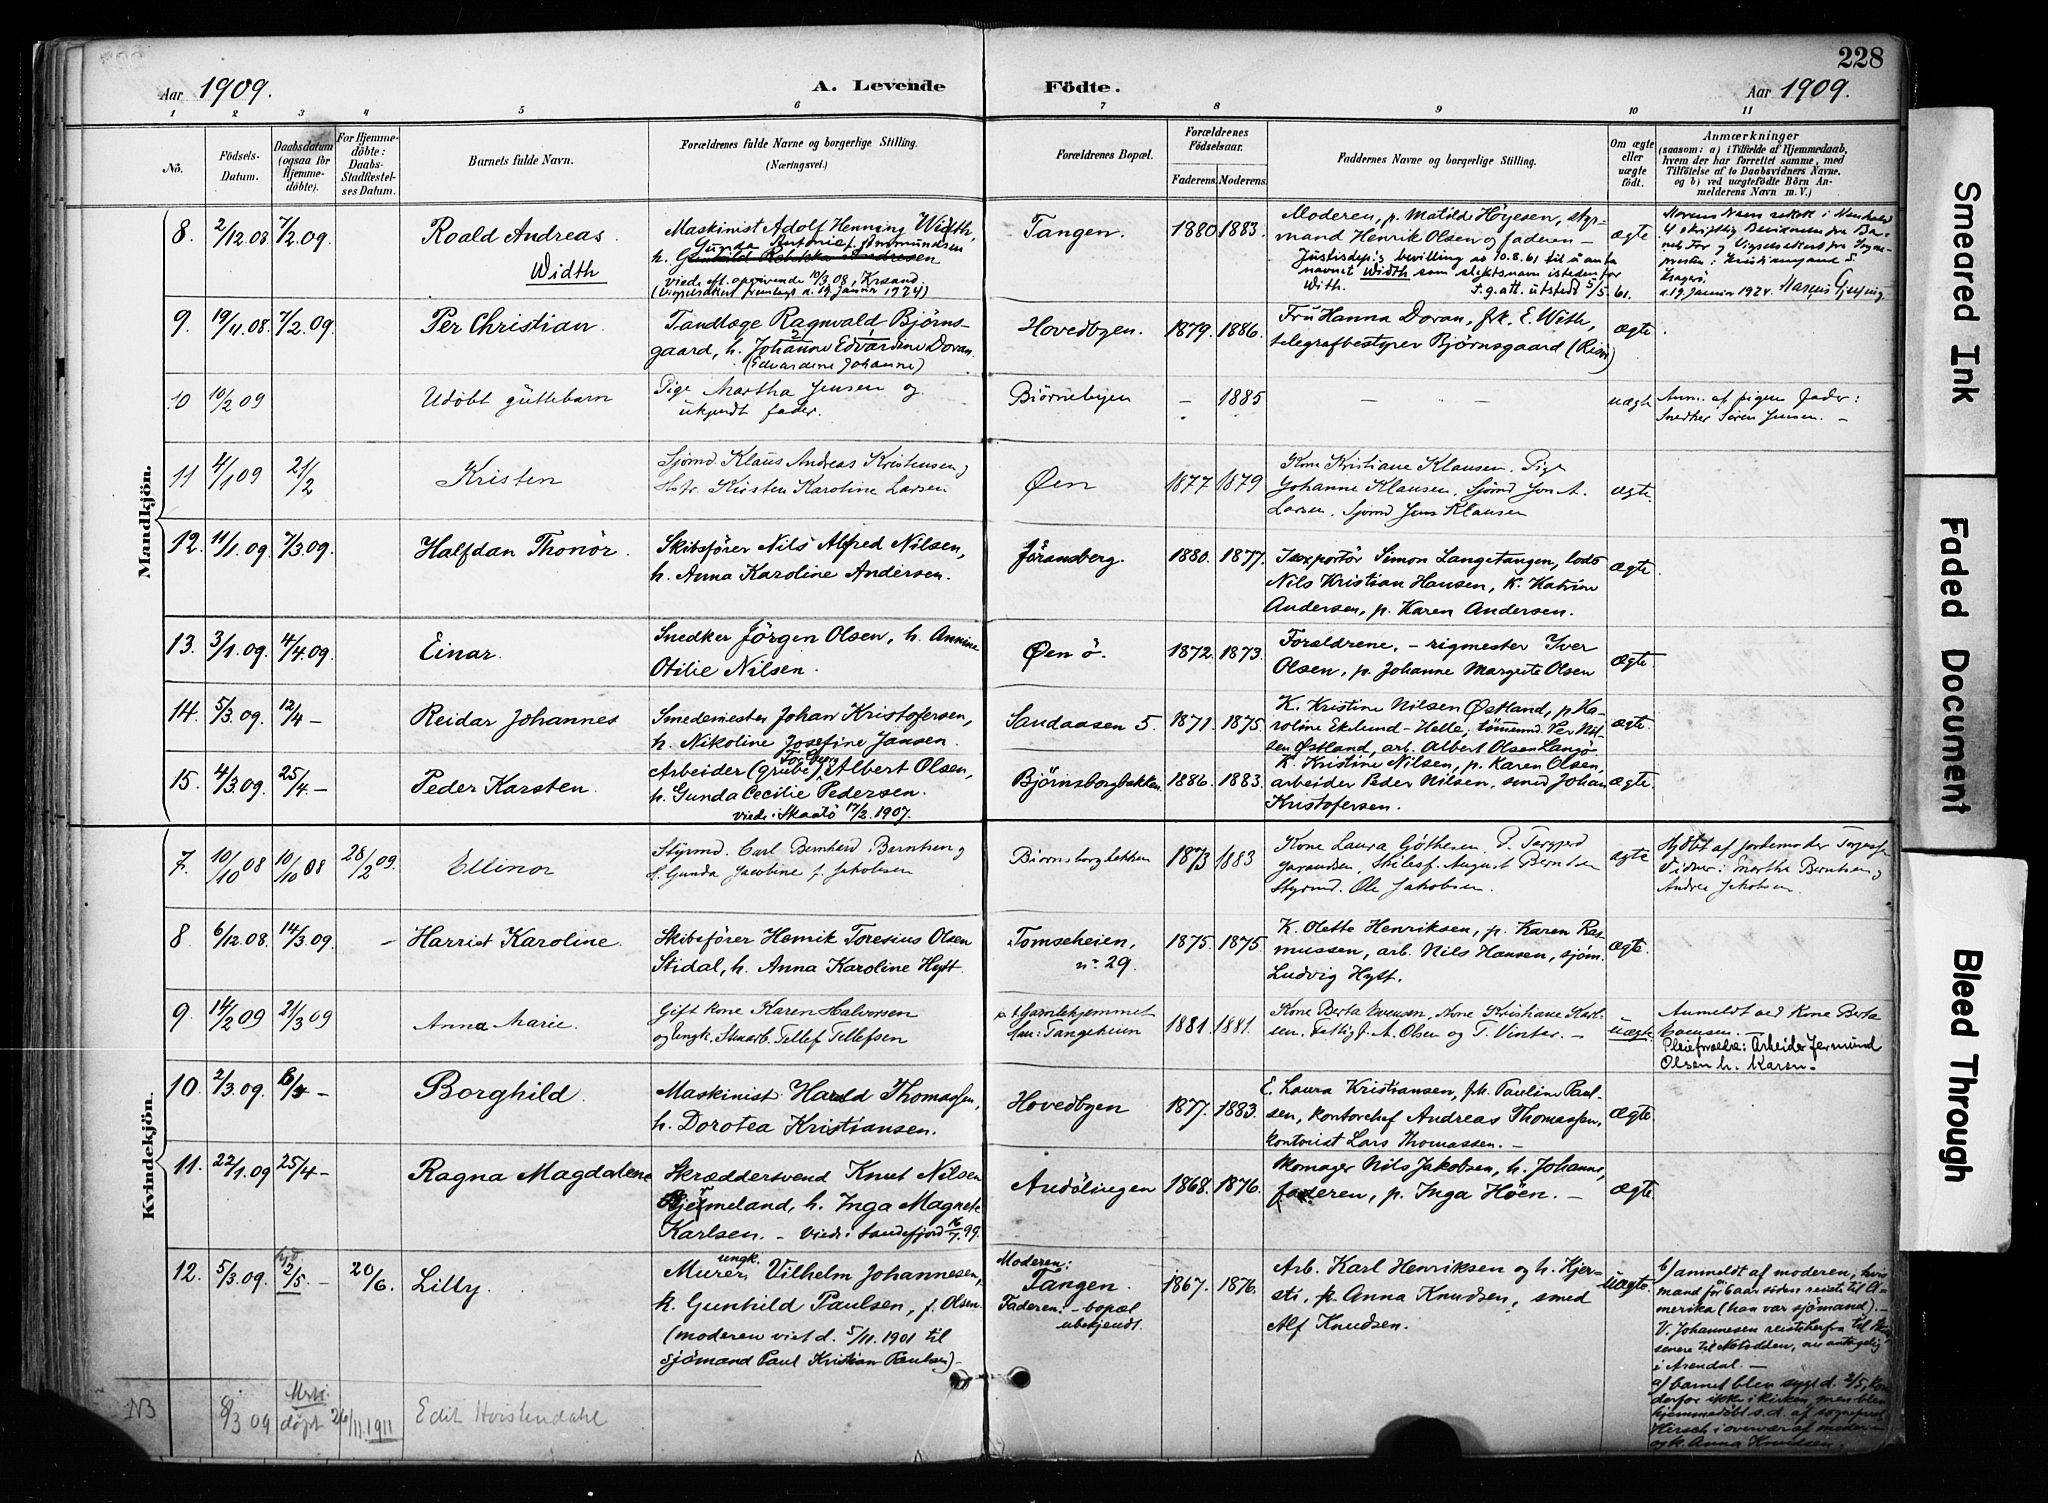 228
Aar 1909.
A. Levende
Födte.
Aar 1909.
1 2 3 4 5 6 7 8 9 10 11
No.
Födsels-
Datum.
Daabsdatum
(ogsaa for
Hjemme-
döbte).
For Hjemme-
döbte:
Daabs-
Stadfæstel-
ses Datum.
Barnets fulde Navn.
Forældrenes fulde Navne og borgerlige Stilling.
(Næringsvei.)
Forældrenes Bopæl.
Forældrenes
Födselsaar.
Faderens. Moderens.
Faddernes Navne og borgerlige Stilling.
Om ægte
eller
uægte
født.
Anmærkninger
(saasom: a) i Tilfælde af Hjemmedaab,
hvem der har forrettet samme, med
Tilföielse af to Daabsvidners Navne.
og b) ved uægtefödte Börn An-
melderens Navn m. V.)
Mandkjön.
8. 2/12.08. 7/2.09. Roald Andreas
Width
Maskinist Adolf Henning Width,
Gunda Antonie f. 
h. Gunhild Rebekka Andresen
viede eft. opgivende 10/3 08, Krsand.
(Vigselsattest fremlagt d. 19 januar 1924)
Tangen. 1880 1883.
Moderen, p. Matilde Höyesen, styr-
mand Henrik Olsen og faderen –
Justisdep's bevilling av 10.8.61 til å anta
navnet Width som slektsnavn istedenfor
With.
ægte
9. 19/11.08. 7/2.09. Per Christian.
Tandlæge Ragnvald Björns-
gaard, h. Johanne Edvardine Doran.
(Edvardine Johanne)
Hovedbyen. 1879. 1886.
Fru Hanna Doran, frk. E. With,
telegrafbestyrer Björnsgaard (Risør)
ægte
10 10/2 09 Udöbt guttebarn
Pige Martha Jensen og
ukjendt fader.
Björnebyen – 1885
– – –
uægte
Anm. af pigens fader:
Snedker Sören Jensen. –
11 4/1 09 21/2 Kristen
Sjömd. Klaus Andreas Kristensen og
Hstr. Kirsten Karoline Larsen
Øen 1877 1879
Kone Kristiane Klausen. Pige
Johanne Klausen. Sjömd Jon A.
Larsen. Sjömd Jens Klausen
ægte.
12. 11/1.09. 7/3.09. Halfdan Thonör.
Skibsförer Nils Alfred Nilsen,
h. Anna Karoline Andersen.
Jöransberg. 1880. 1877.
Isexportör Simon Langetangen, lods
Nils Kristian Hansen, k. Katrine
Andersen, p. Karen Andersen.
ægte.
13. 3/1.09. 4/4.09. Einar.
Snedker Jörgen Olsen, h. Annine
Otilie Nilsen.
Øen ö. 1872. 1873.
Forældrene, – rigmester Iver
Olsen, p. Johanne Margrete Olsen
ægte.
14. 5/3.09. 12/4 – Reidar Johannes
Smedemester Johan Kristofersen,
h. Nikoline Josefine Jansen.
Sandaasen 5. 1871. 1875.
K. Kristine Nilsen Østland, p. Ka-
roline Eklund-Helle, tömmermd. Per Nil-
sen Østland, arb. Albert Olsen Langö
ægte
15. 4/3.09. 25/4. – Peder Karsten.
Arbeider (grube) Albert Olsen,
h. Gunda Cecilie Pedersen.
viede i Skaatö 17/2.1907.
Björnsborgbakken. 1886. 1883.
K. Kristine Nilsen, p. Karen Olsen,
arbeider Peder Nilsen, smed Johan
Kristofersen.
ægte.
Kvindekjön.
7. 10/10 08 10/10 08 28/2 09. Ellinor
Styrmd. Carl Bernhard Berntsen og
h. Gunda Jacobine f. Jakobsen
Björnsborgbakken 1873 1883
Kone Laura Göthesen. P. Torgjerd
Skibsf. August Berntsen
Styrmd. Ole Jakobsen.
ægte
Hjdöbt af jordemoder
Vidner: Marthe Berntsen og
Andrea Jakobsen.
8 6/12.08. 14/3.09. – Harriet Karoline.
Skibsförer Henrik Toresius Olsen
Stidal, h. Anna Karoline Hytt.
Tomseheien,
nr 29.
1875. 1875
K. Olette Henriksen, p. Karen Ras-
mussen, arb. Nils Hansen, sjöm.
Ludvig Hytt.
ægte.
9. 14/2 09 21/3 09 Anna Marie.
Gift kone Karen Halvorsen
og Ungk. Stuearb. Tellef Tellefsen
p. t. Gamlehjemmet
Han: Tangeheien
1881. 1881.
Kone Berta Svensen, Kone Kristiane Karl-
sen. Fattigf. A. Olsen og T. Vinter. –
uægte
Anmeldt ved Kone Berta
Pleieforældre: Arbeider Jermund
Olsen h. Karen.
10. 2/3.09. 6/4 – Borghild
Maskinist Harald Thomassen,
h. Dorotea Kristiansen.
Hovedbyen 1877. 1883.
E. Laura Kristiansen, frk. Pauline Paul-
sen, kontorchef Andreas Thomassen,
kontorist Lars Thomassen. –
ægte.
11. 22/1.09 25/4 – Ragna Magdalene
Skræddersvend Knut Nilsen
Hjermeland, h. Inga Magnete
Karlsen. – viede i Sandefjord 16/7.99.
Andölingen 1868. 1876.
Momager Nils Jakobsen, h. Johanne,
faderen, p. Inga Höen. –
ægte.
12. 5/3.09. hjd. 2/5. – 20/6. Lilly.
ungk.
Murer Vilhelm Johannesen,
k. Gunhild Paulsen, f. Olsen.
(moderen viet d. 5/11.1901 til
sjömand Paul Kristian Paulsen) –
Moderen:
Tangen.
Faderen: – bopæl
ubekjendt.
1867. 1876.
Arb. Karl Henriksen og h. Kjer-
sti, p. Anna Knudsen, smed
Alf Knudsen.
uægte.
b) anmeldt af moderen, hvis
mand for 6 aar siden reiste til A-
merika (han var sjömand). –
V. Johannesen reiste herfra til
senere til Notodden, nu antagelig
i Arendal. –
a) barnet blev sygt d. 2/5, kom
derfor ikke i kirken, men blev
hjemmedöbt s. d. af sogneprest
Hersch i overvær af moderen
og k. Anna Knudsen.
NB 8/3 09 döpt 26/11.1911 Edit Hvistendahl
Smeared Ink
Faded Document
Bleed Through